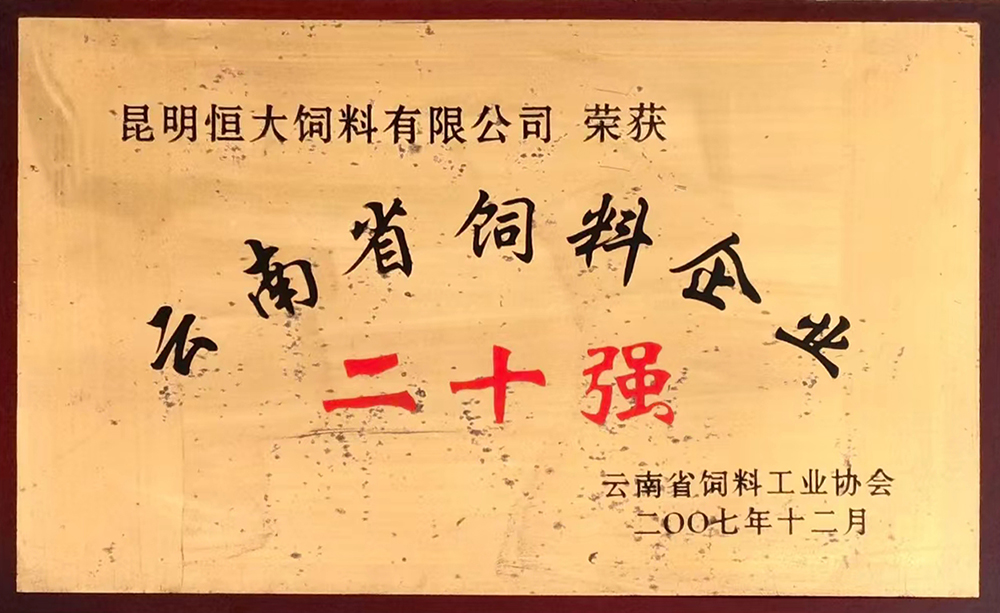 昆明恒大饲料有限公司 荣获
云南省饲料企业
二十强
云南省饲料工业协会
二〇〇七年十二月